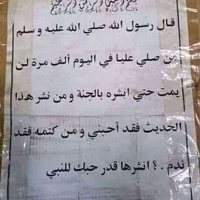 قال رسول الله صلي الله عليه و سلم
من صلي عليا في اليوم ألف مرة لن
يمت حتي ابشره بالجنة و من نشر هذا
الحديث فقد أحبني و من كتمه فقد
ندم . ؟ انشرها قدر حبك للنبي